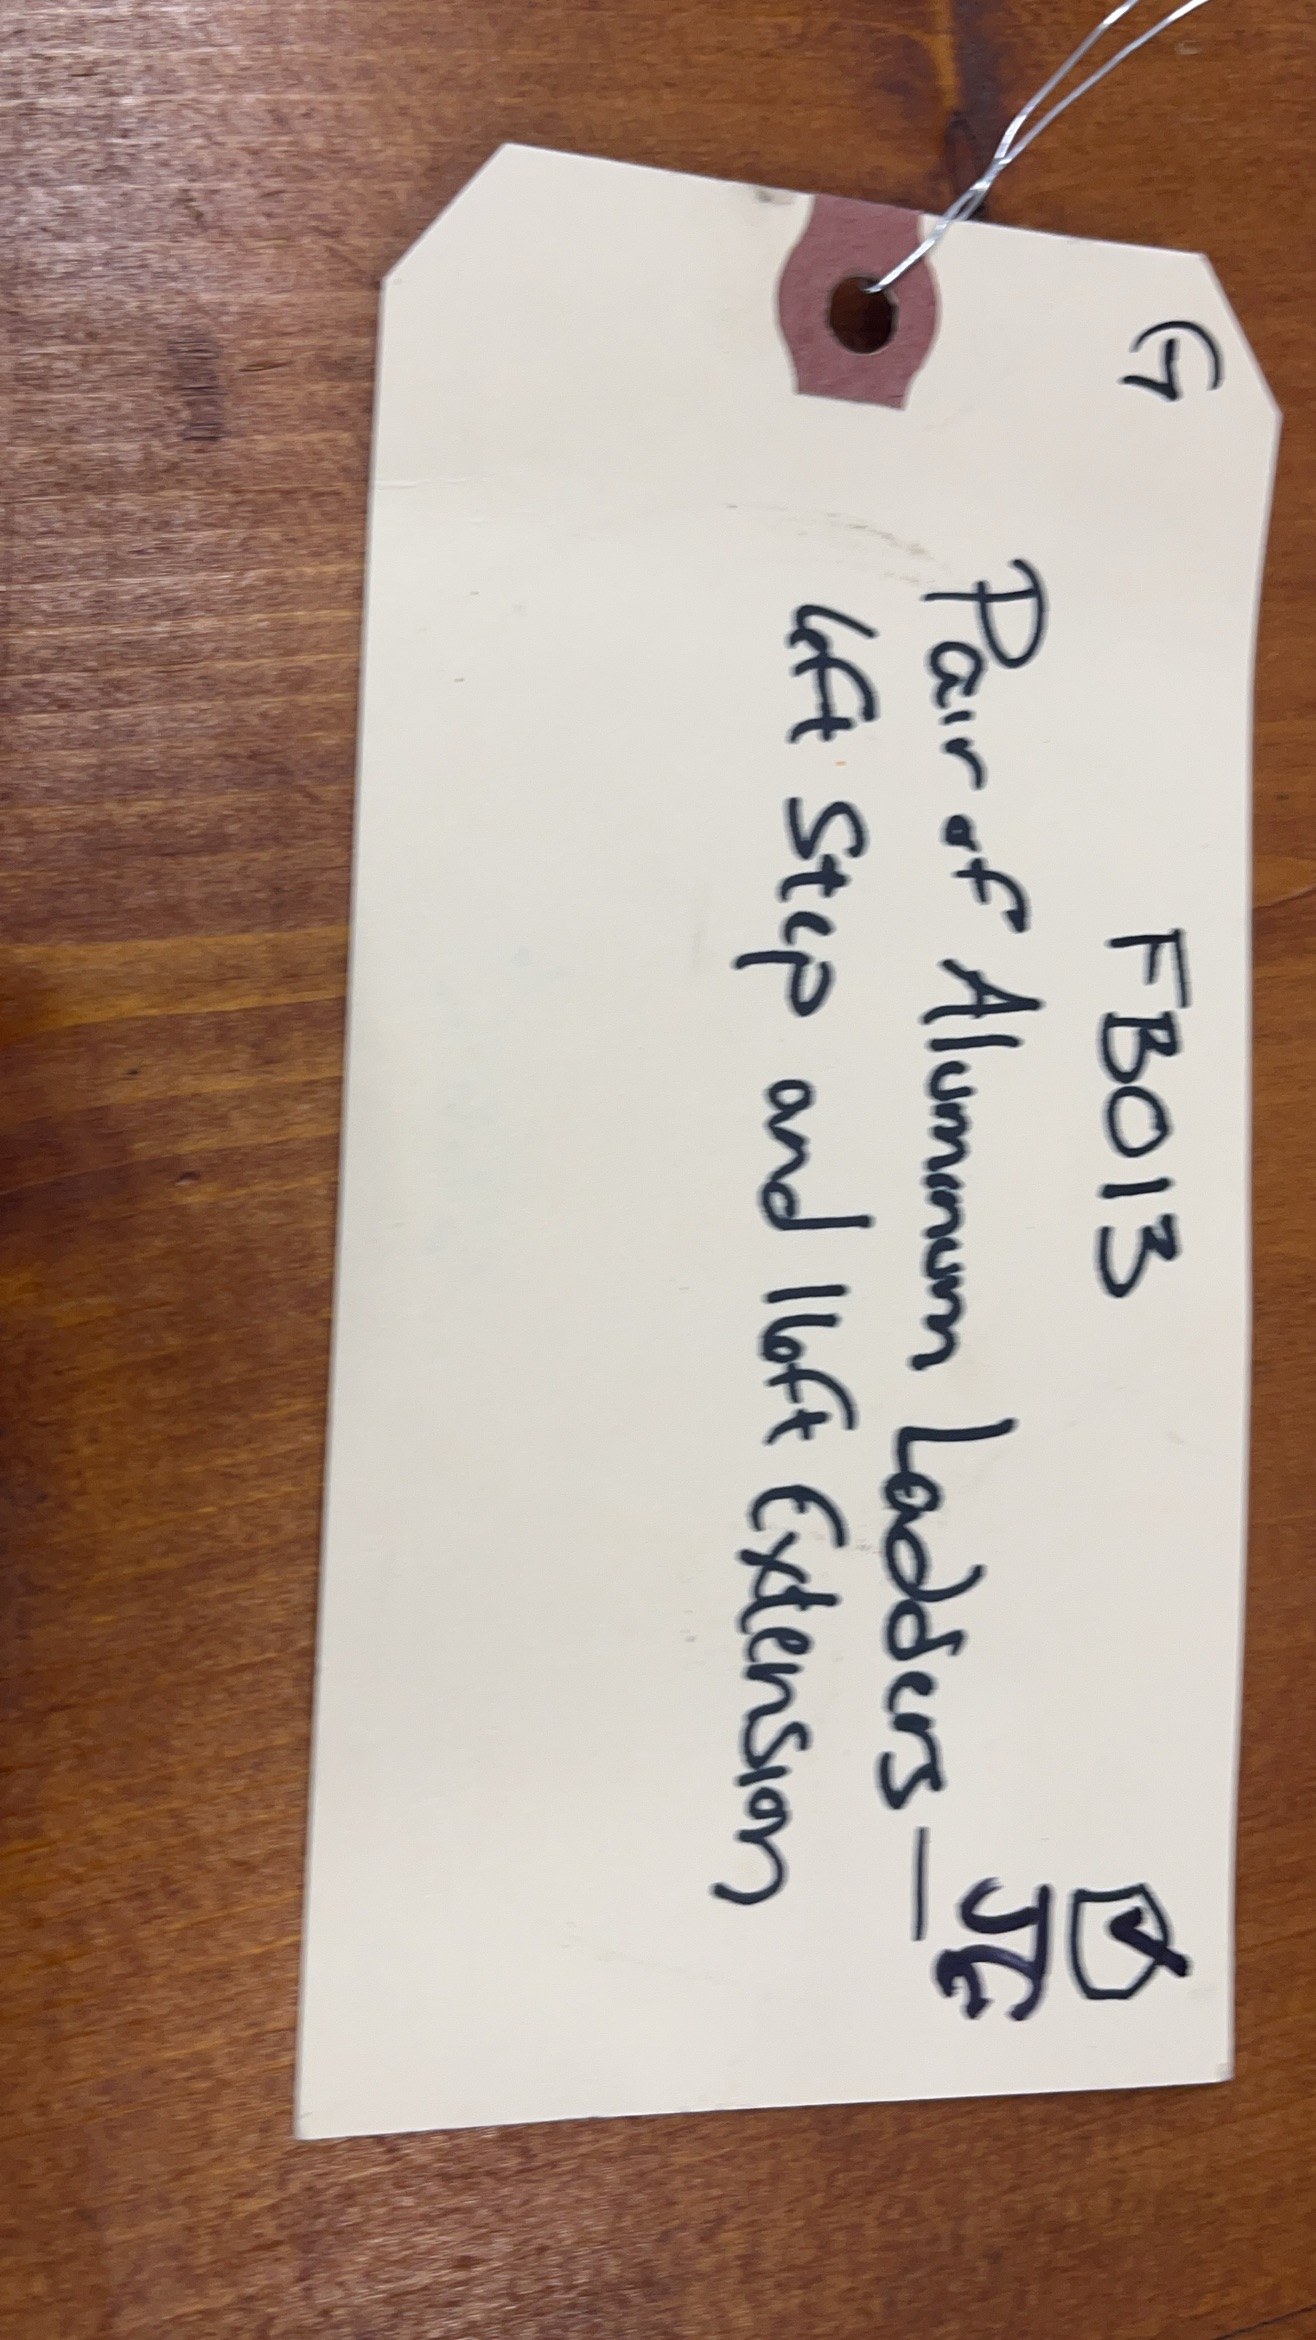 G
FB013
Pair of Aluminum Ladders - JG
6ft Step and 16ft Extension